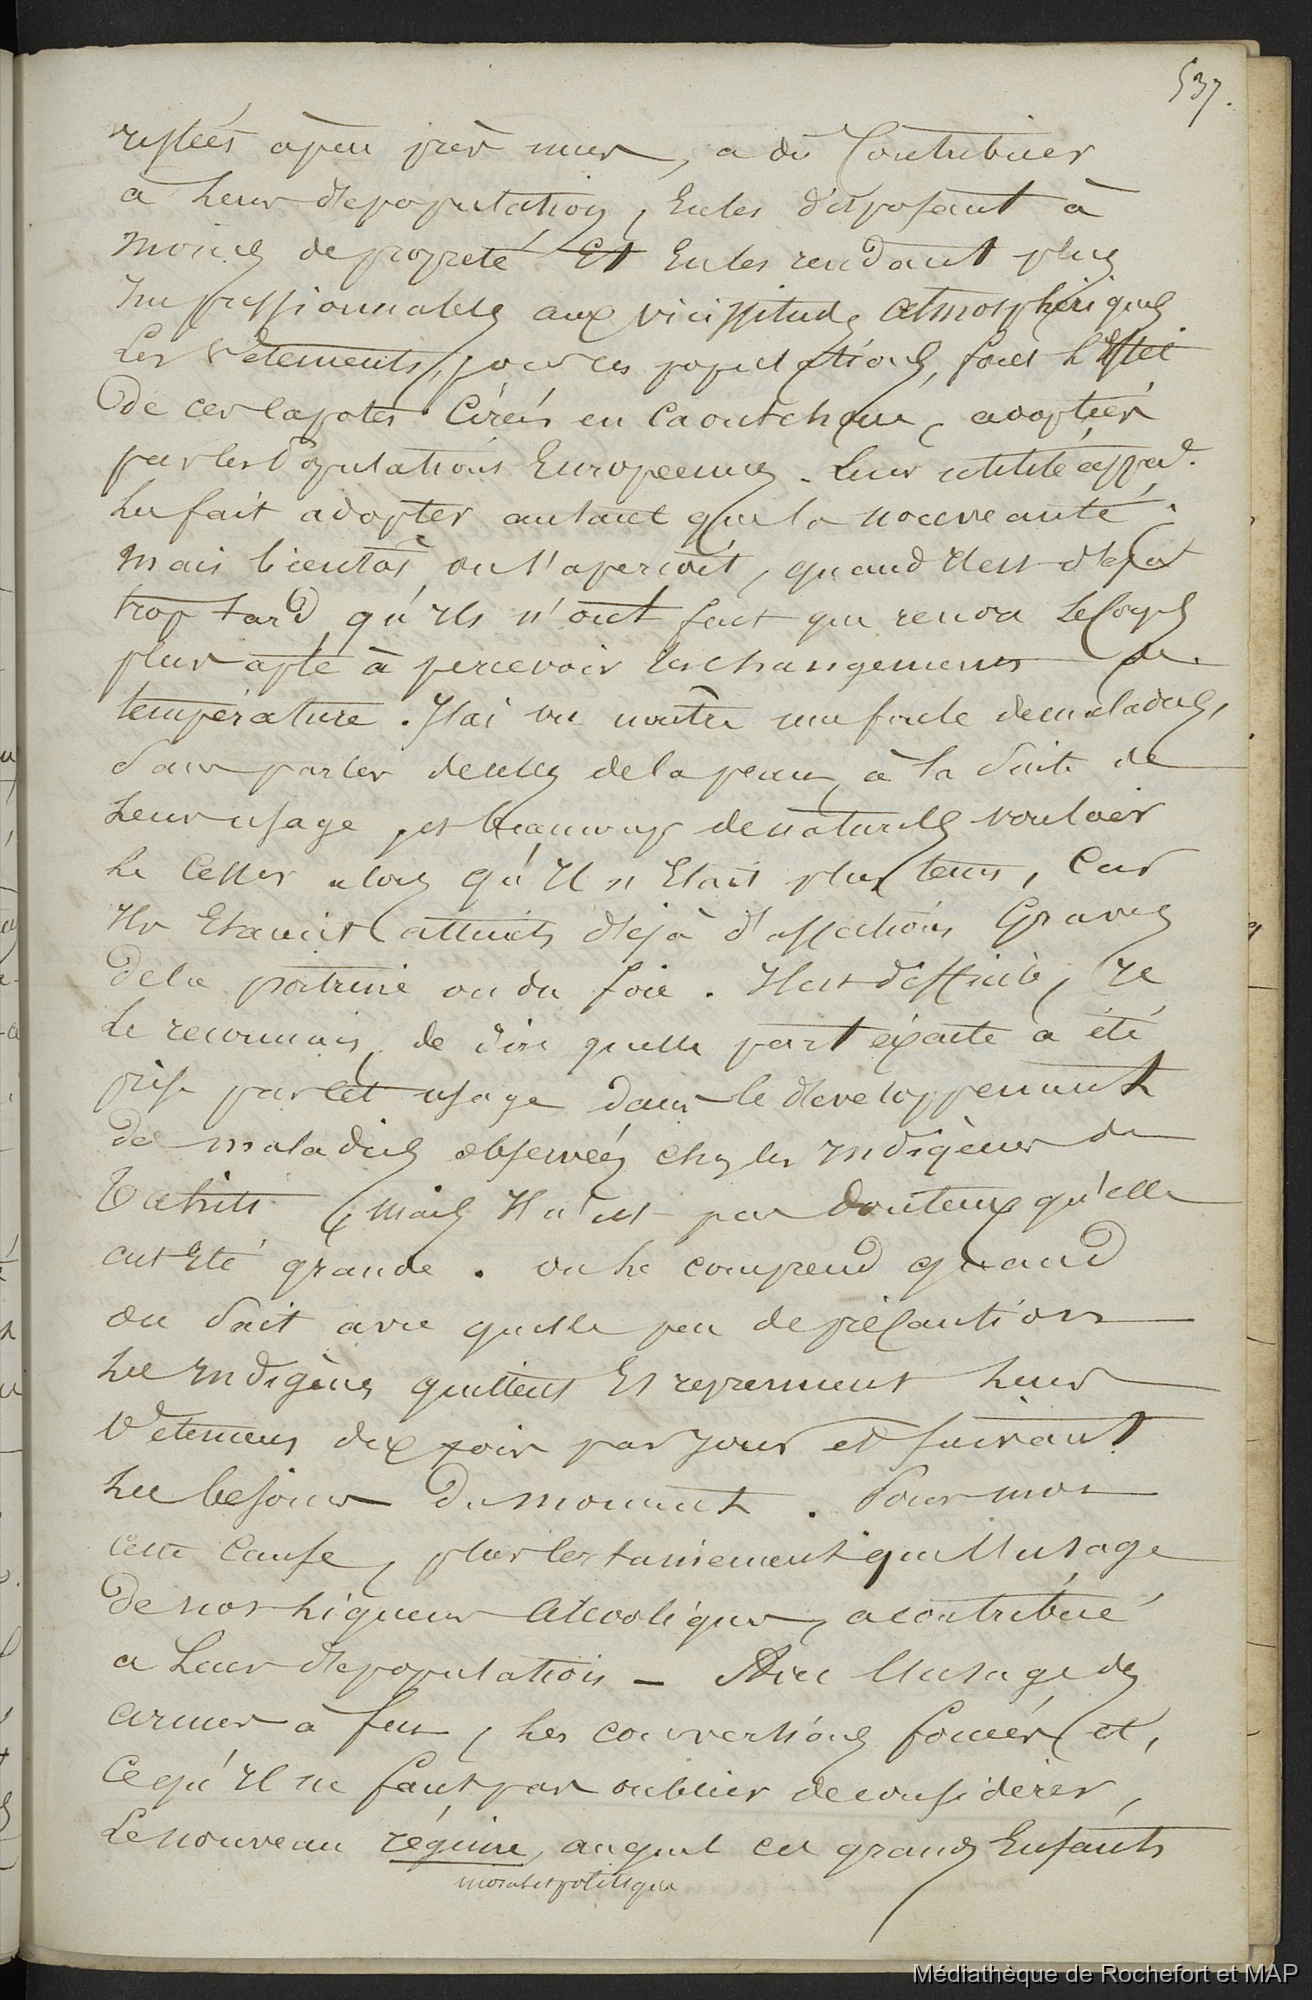 537.
restées à peu près nues, a dû Contribuer
à Leur depopulation, En les disposant à
moins de propreté Et En les rendant plus
Impressionnables aux vicissitudes atmosphériques
Les Vêtements, pour ces populations, font l'effet
de ces capotes Cirées en Caoutchouc, adoptées
par les Populations Européennes. Leur utilité appar.te
Les fait adopter autant que la nouveauté;
Mais bientôt on s'aperçoit, quand Il est deja
trop tard, qu'Ils n'ont fait que rendre Le Corps
plus apte à percevoir les changements de
température. J'ai vu naître une foule de maladies,
Sans parler de celles de la peau, à la Suite de
Leur usage, et beaucoup de naturels vouloir
Le Cesser alors qu'Il n'Etait plus tems, Car
Ils Etaient atteints déjà d'affections Graves
de la poitrine ou du foie. Il est difficile, Je
Le reconnais, de dire quelle part éxacte a été
prise par Cet usage dans le developpement
des maladies observées chez les Indigènes de
Tahiti, Mais Il n'est pas douteux qu'elle
ait Eté grande. On Le comprend quand
on Sait avec quelle peu de précautions
Les Indigènes quittent Et reprennent Leurs
Vêtemens dix fois par Jour et suivant
Les besoins du moment. Pour moi
cette Cause, plus Certainement que l'usage
de nos Liqueurs Alcooliques, a contribué
a Leur depopulation – Avec l'usage des
armes à feu, Les conversions forcées et,
Ce qu'Il ne faut pas oublier de considérer,
Le nouveau régime, auquel ces grands Enfants
moral et politique
Médiathèque de Rochefort et MAP